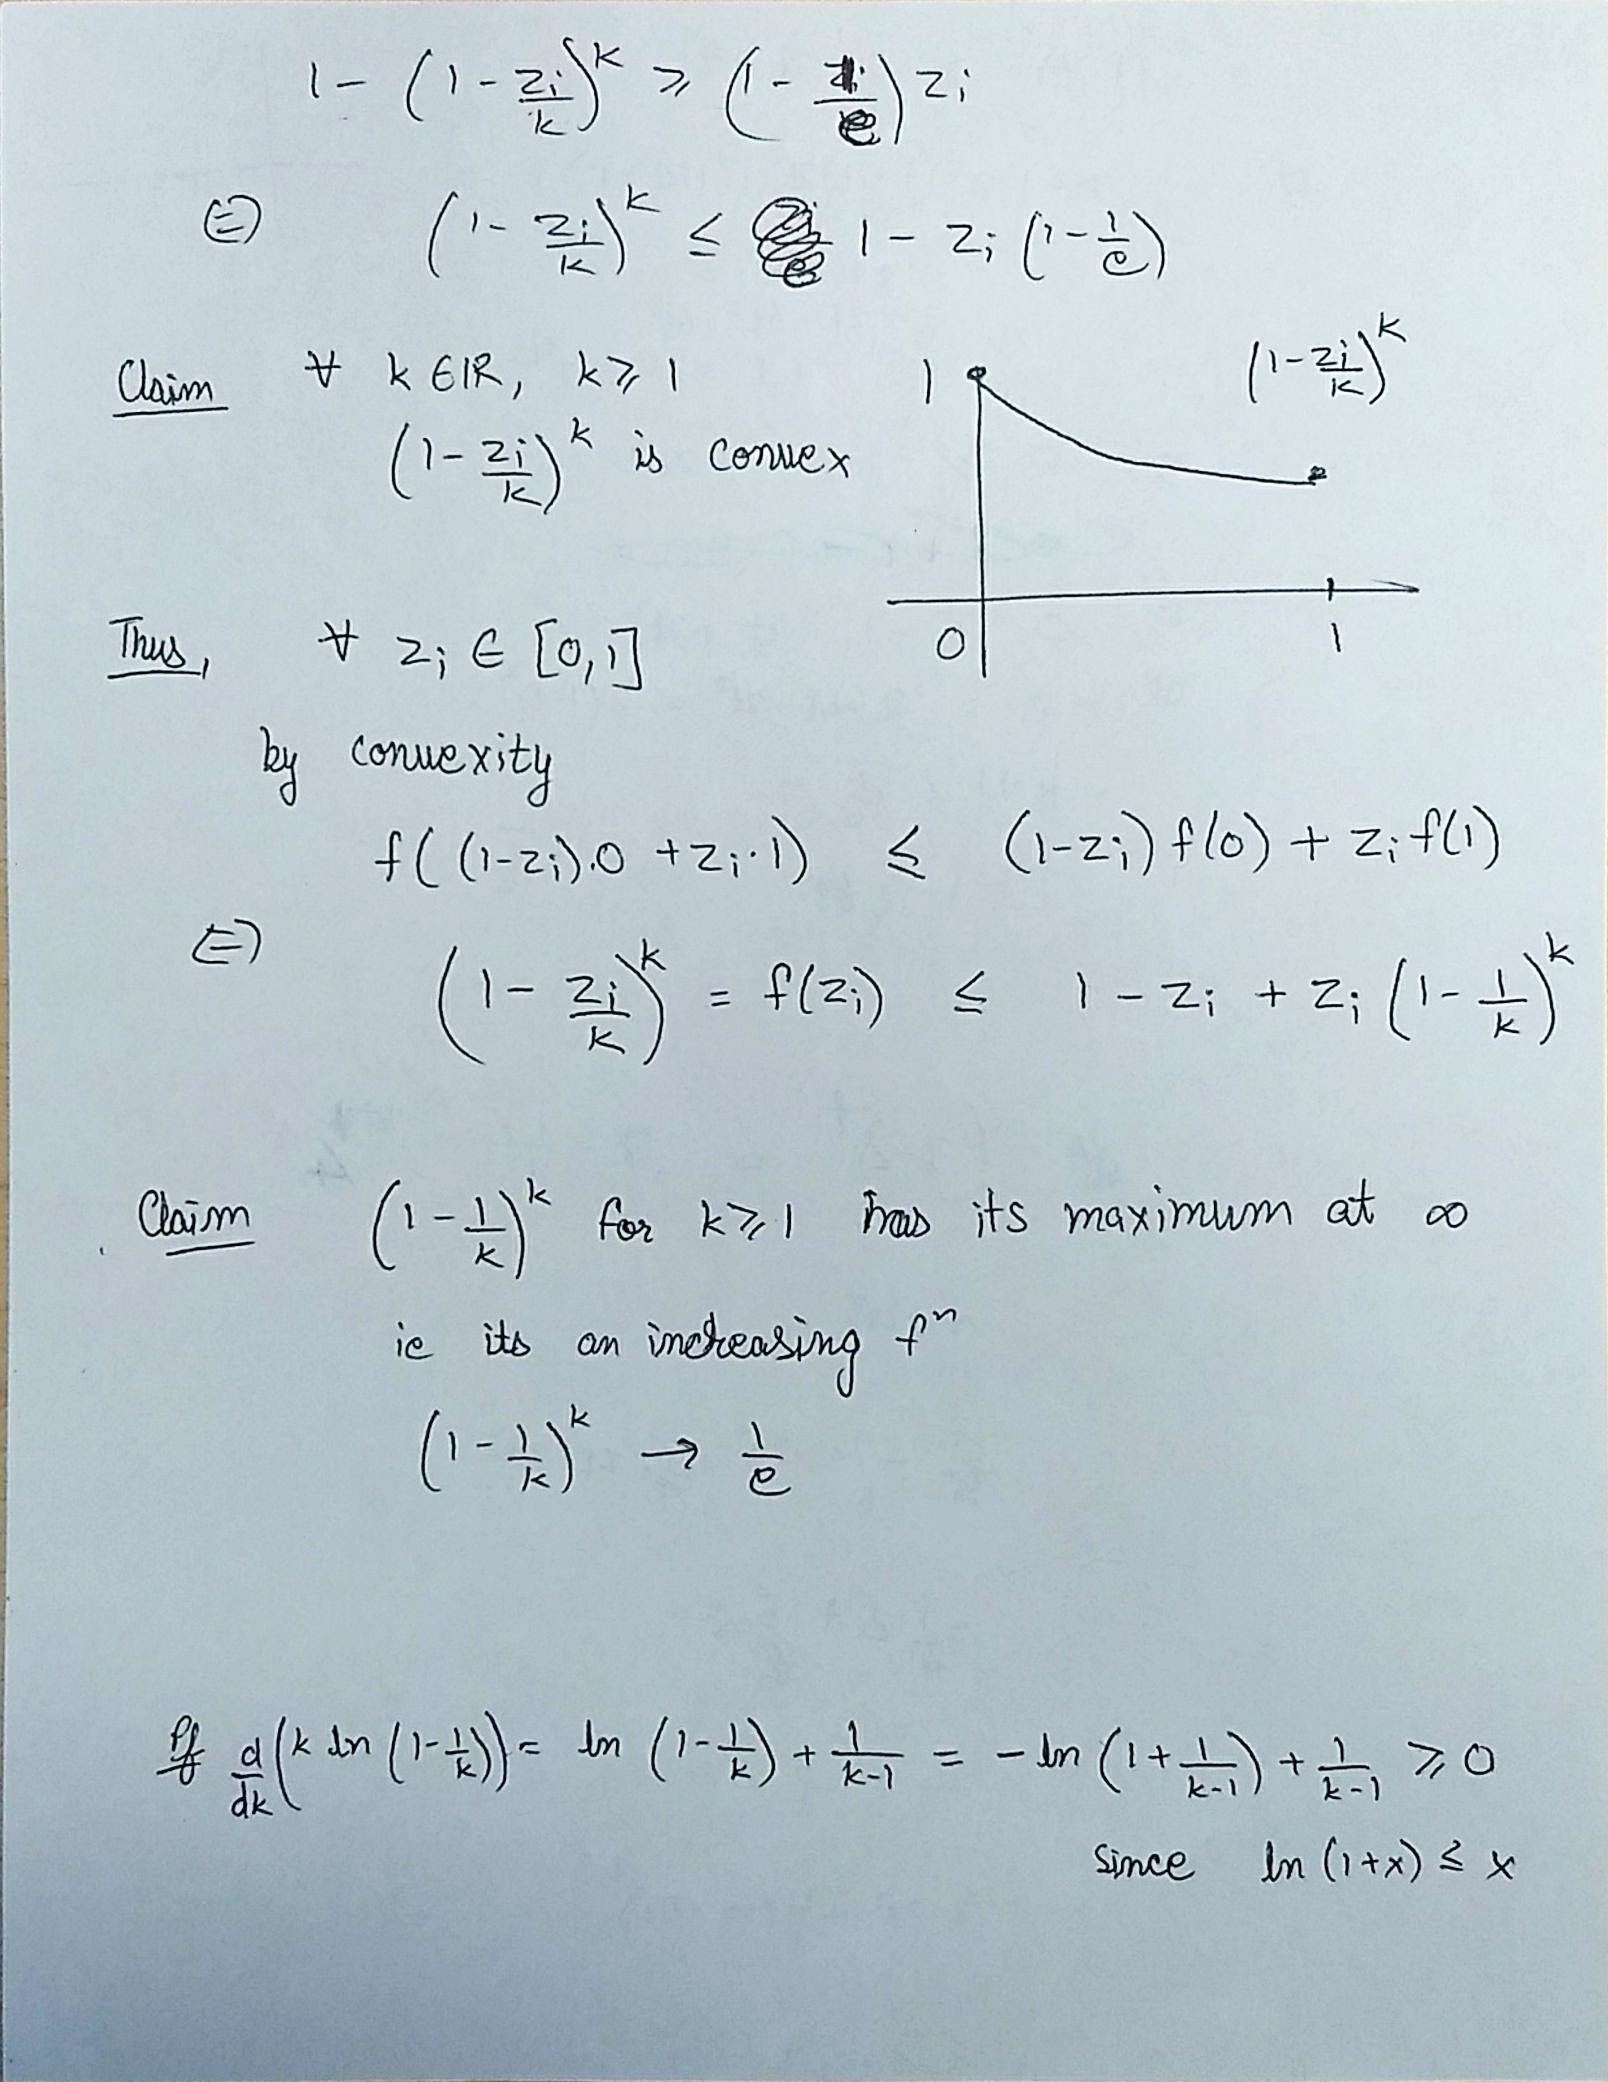 1 - (1 - z_i/k)^k ≥ (1 - 1/e) z_i
⇔ (1 - z_i/k)^k ≤ 1 - z_i (1 - 1/e)
Claim ∀ k ∈ ℝ, k ≥ 1
(1 - z_i/k)^k is convex
1 (1 - z_i/k)^k
0 1
Thus, ∀ z_i ∈ [0,1]
by convexity
f((1-z_i).0 + z_i·1) ≤ (1-z_i) f(0) + z_i f(1)
⇔ (1 - z_i/k)^k = f(z_i) ≤ 1 - z_i + z_i (1 - 1/k)^k
Claim (1 - 1/k)^k for k ≥ 1 has its maximum at ∞
ie its an increasing fⁿ
(1 - 1/k)^k → 1/e
Pf d/dk (k ln (1 - 1/k)) = ln (1 - 1/k) + 1/(k-1) = - ln (1 + 1/(k-1)) + 1/(k-1) ≥ 0
since ln (1+x) ≤ x